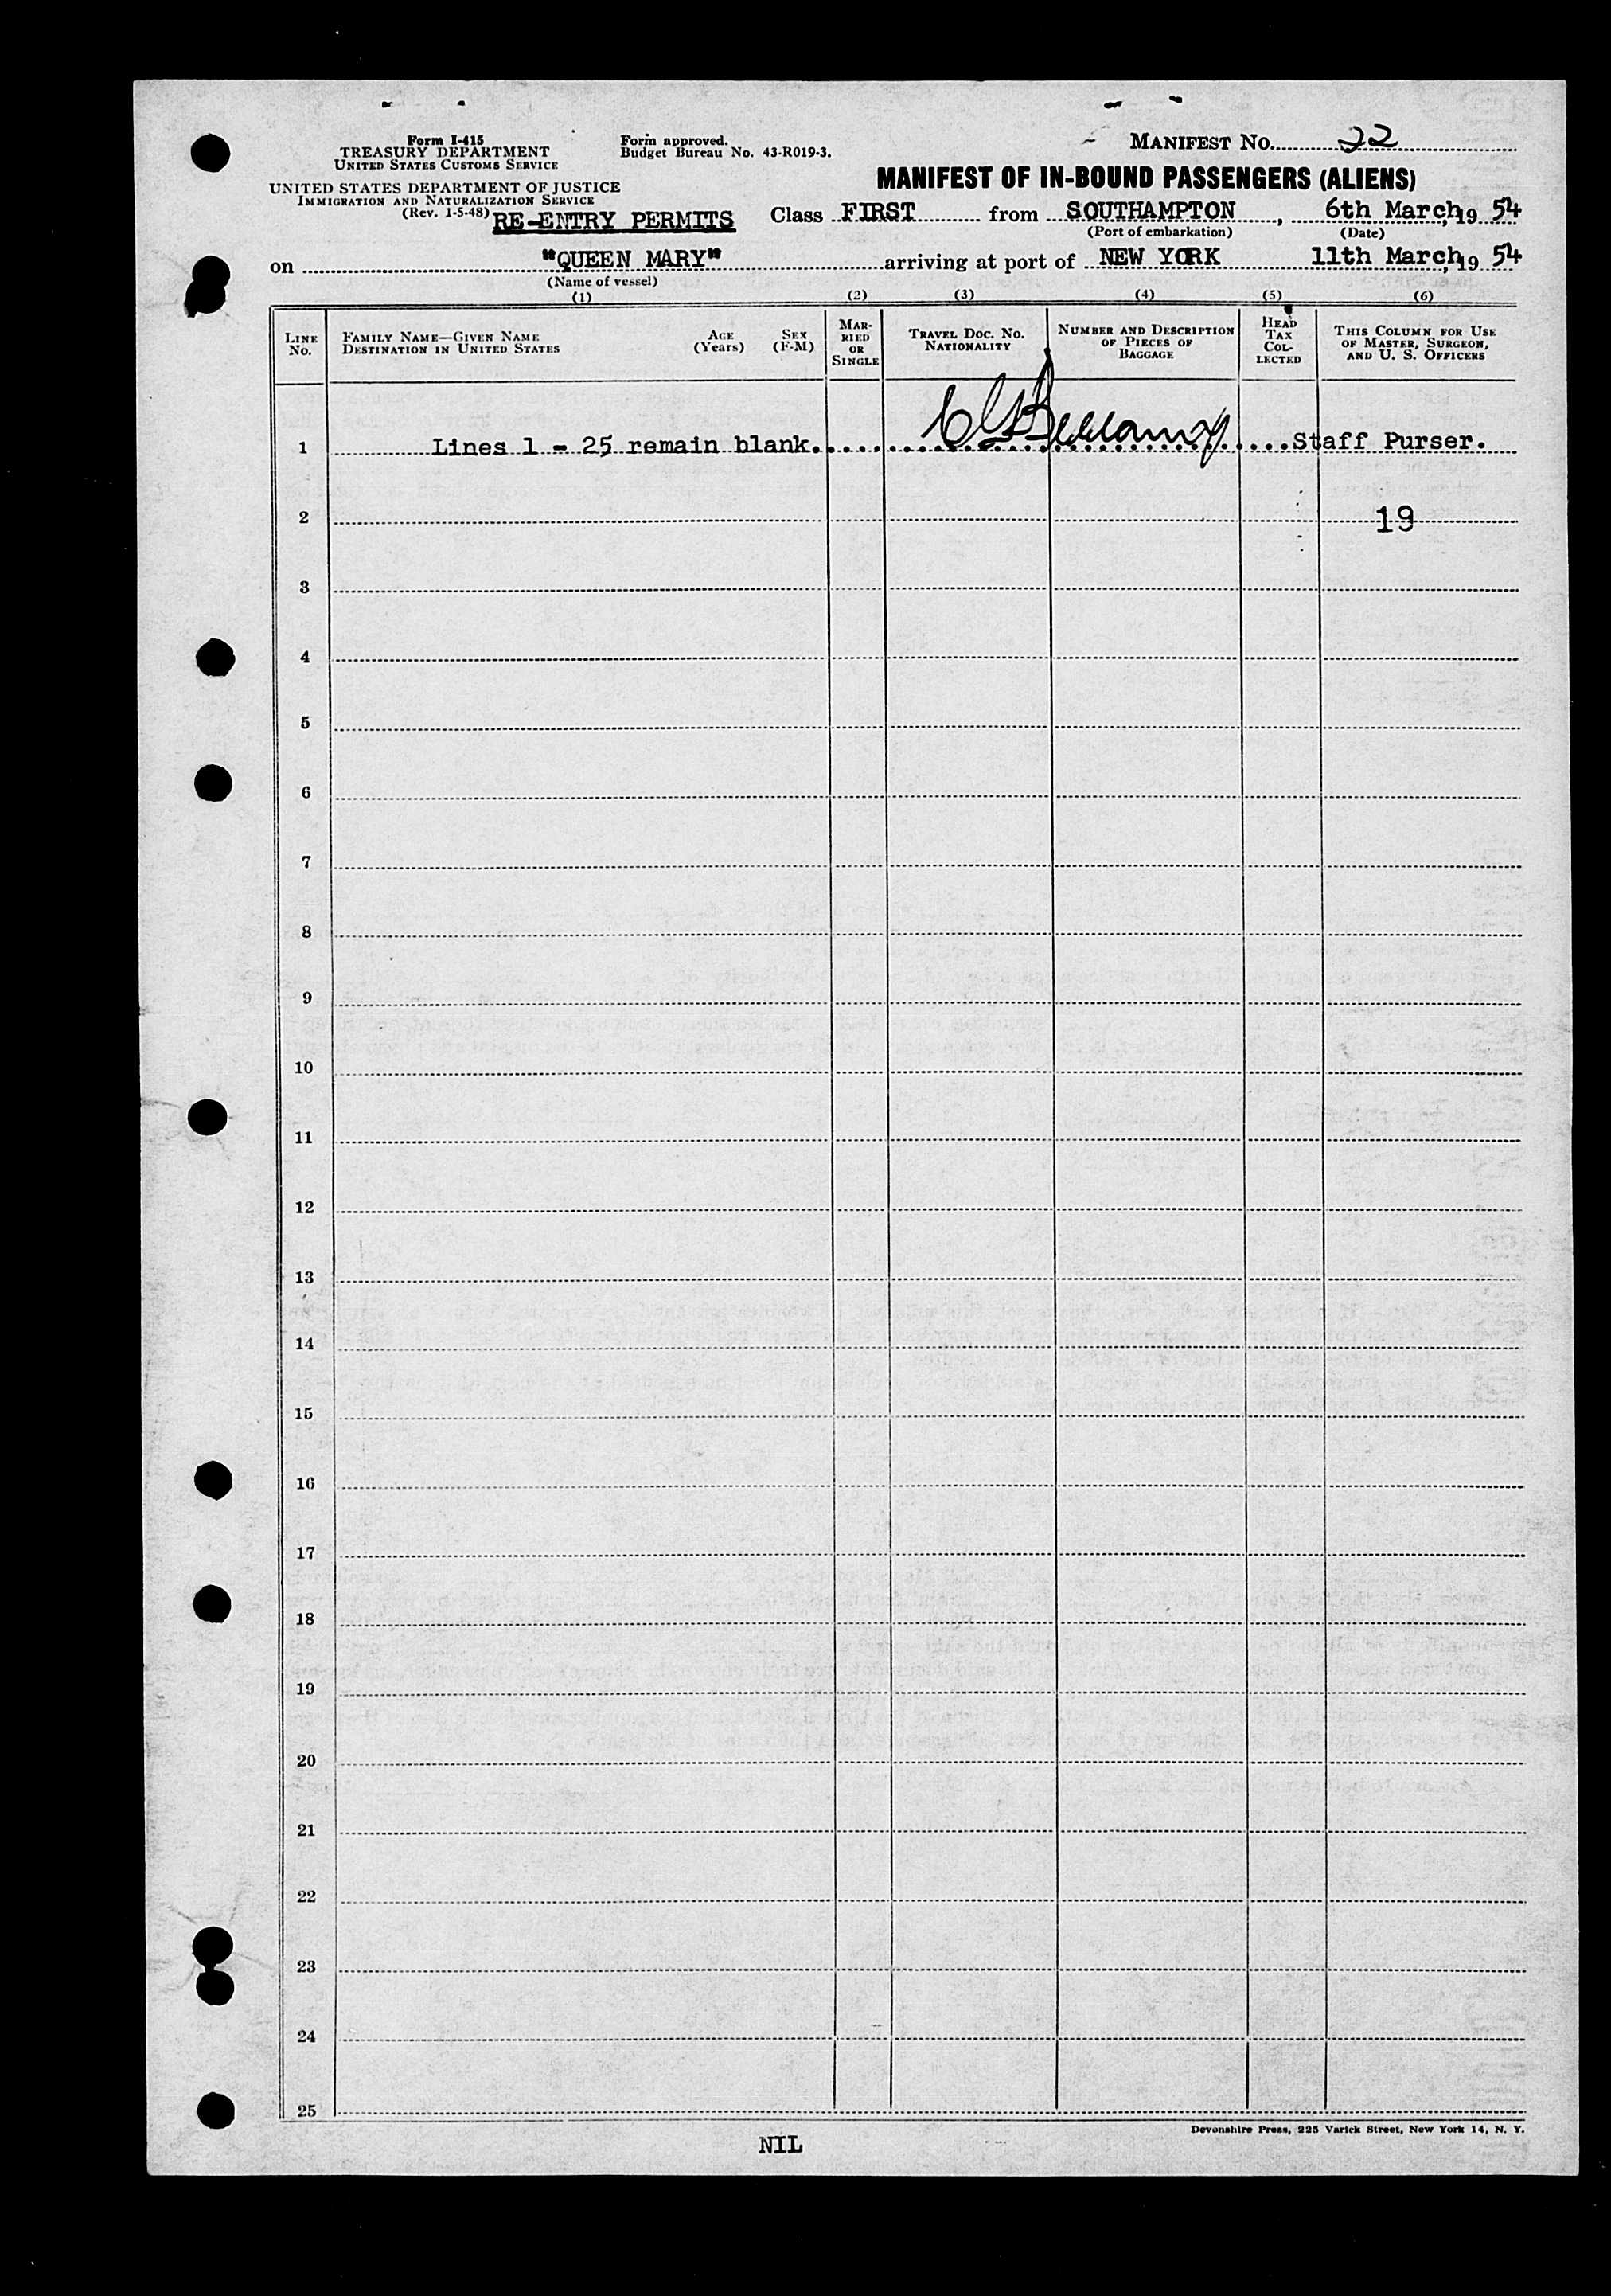 Form I-415
TREASURY DEPARTMENT
UNITED STATES CUSTOMS SERVICE
UNITED STATES DEPARTMENT OF JUSTICE
IMMIGRATION AND NATURALIZATION SERVICE
(Rev. 1-5-48)
Form approved.
Budget Bureau No. 43-R019-3.
MANIFEST NO. 22
MANIFEST OF IN-BOUND PASSENGERS (ALIENS)
RE-ENTRY PERMITS Class FIRST from SOUTHAMPTON, 6th March, 19 54
(Port of embarkation) (Date)
on "QUEEN MARY" arriving at port of NEW YORK 11th March, 19 54
(Name of vessel)
(1) (2) (3) (4) (5) (6)
LINE NO.
FAMILY NAME—GIVEN NAME
DESTINATION IN UNITED STATES
AGE (Years)
SEX (F-M)
MAR-
RIED
OR
SINGLE
TRAVEL DOC. NO.
NATIONALITY
NUMBER AND DESCRIPTION
OF PIECES OF
BAGGAGE
HEAD
TAX
COL-
LECTED
THIS COLUMN FOR USE
OF MASTER, SURGEON,
AND U. S. OFFICERS
1 Lines 1 - 25 remain blank. Staff Purser.
2 19
3
4
5
6
7
8
9
10
11
12
13
14
15
16
17
18
19
20
21
22
23
24
25
Devonshire Press, 225 Varick Street, New York 14, N. Y.
NIL